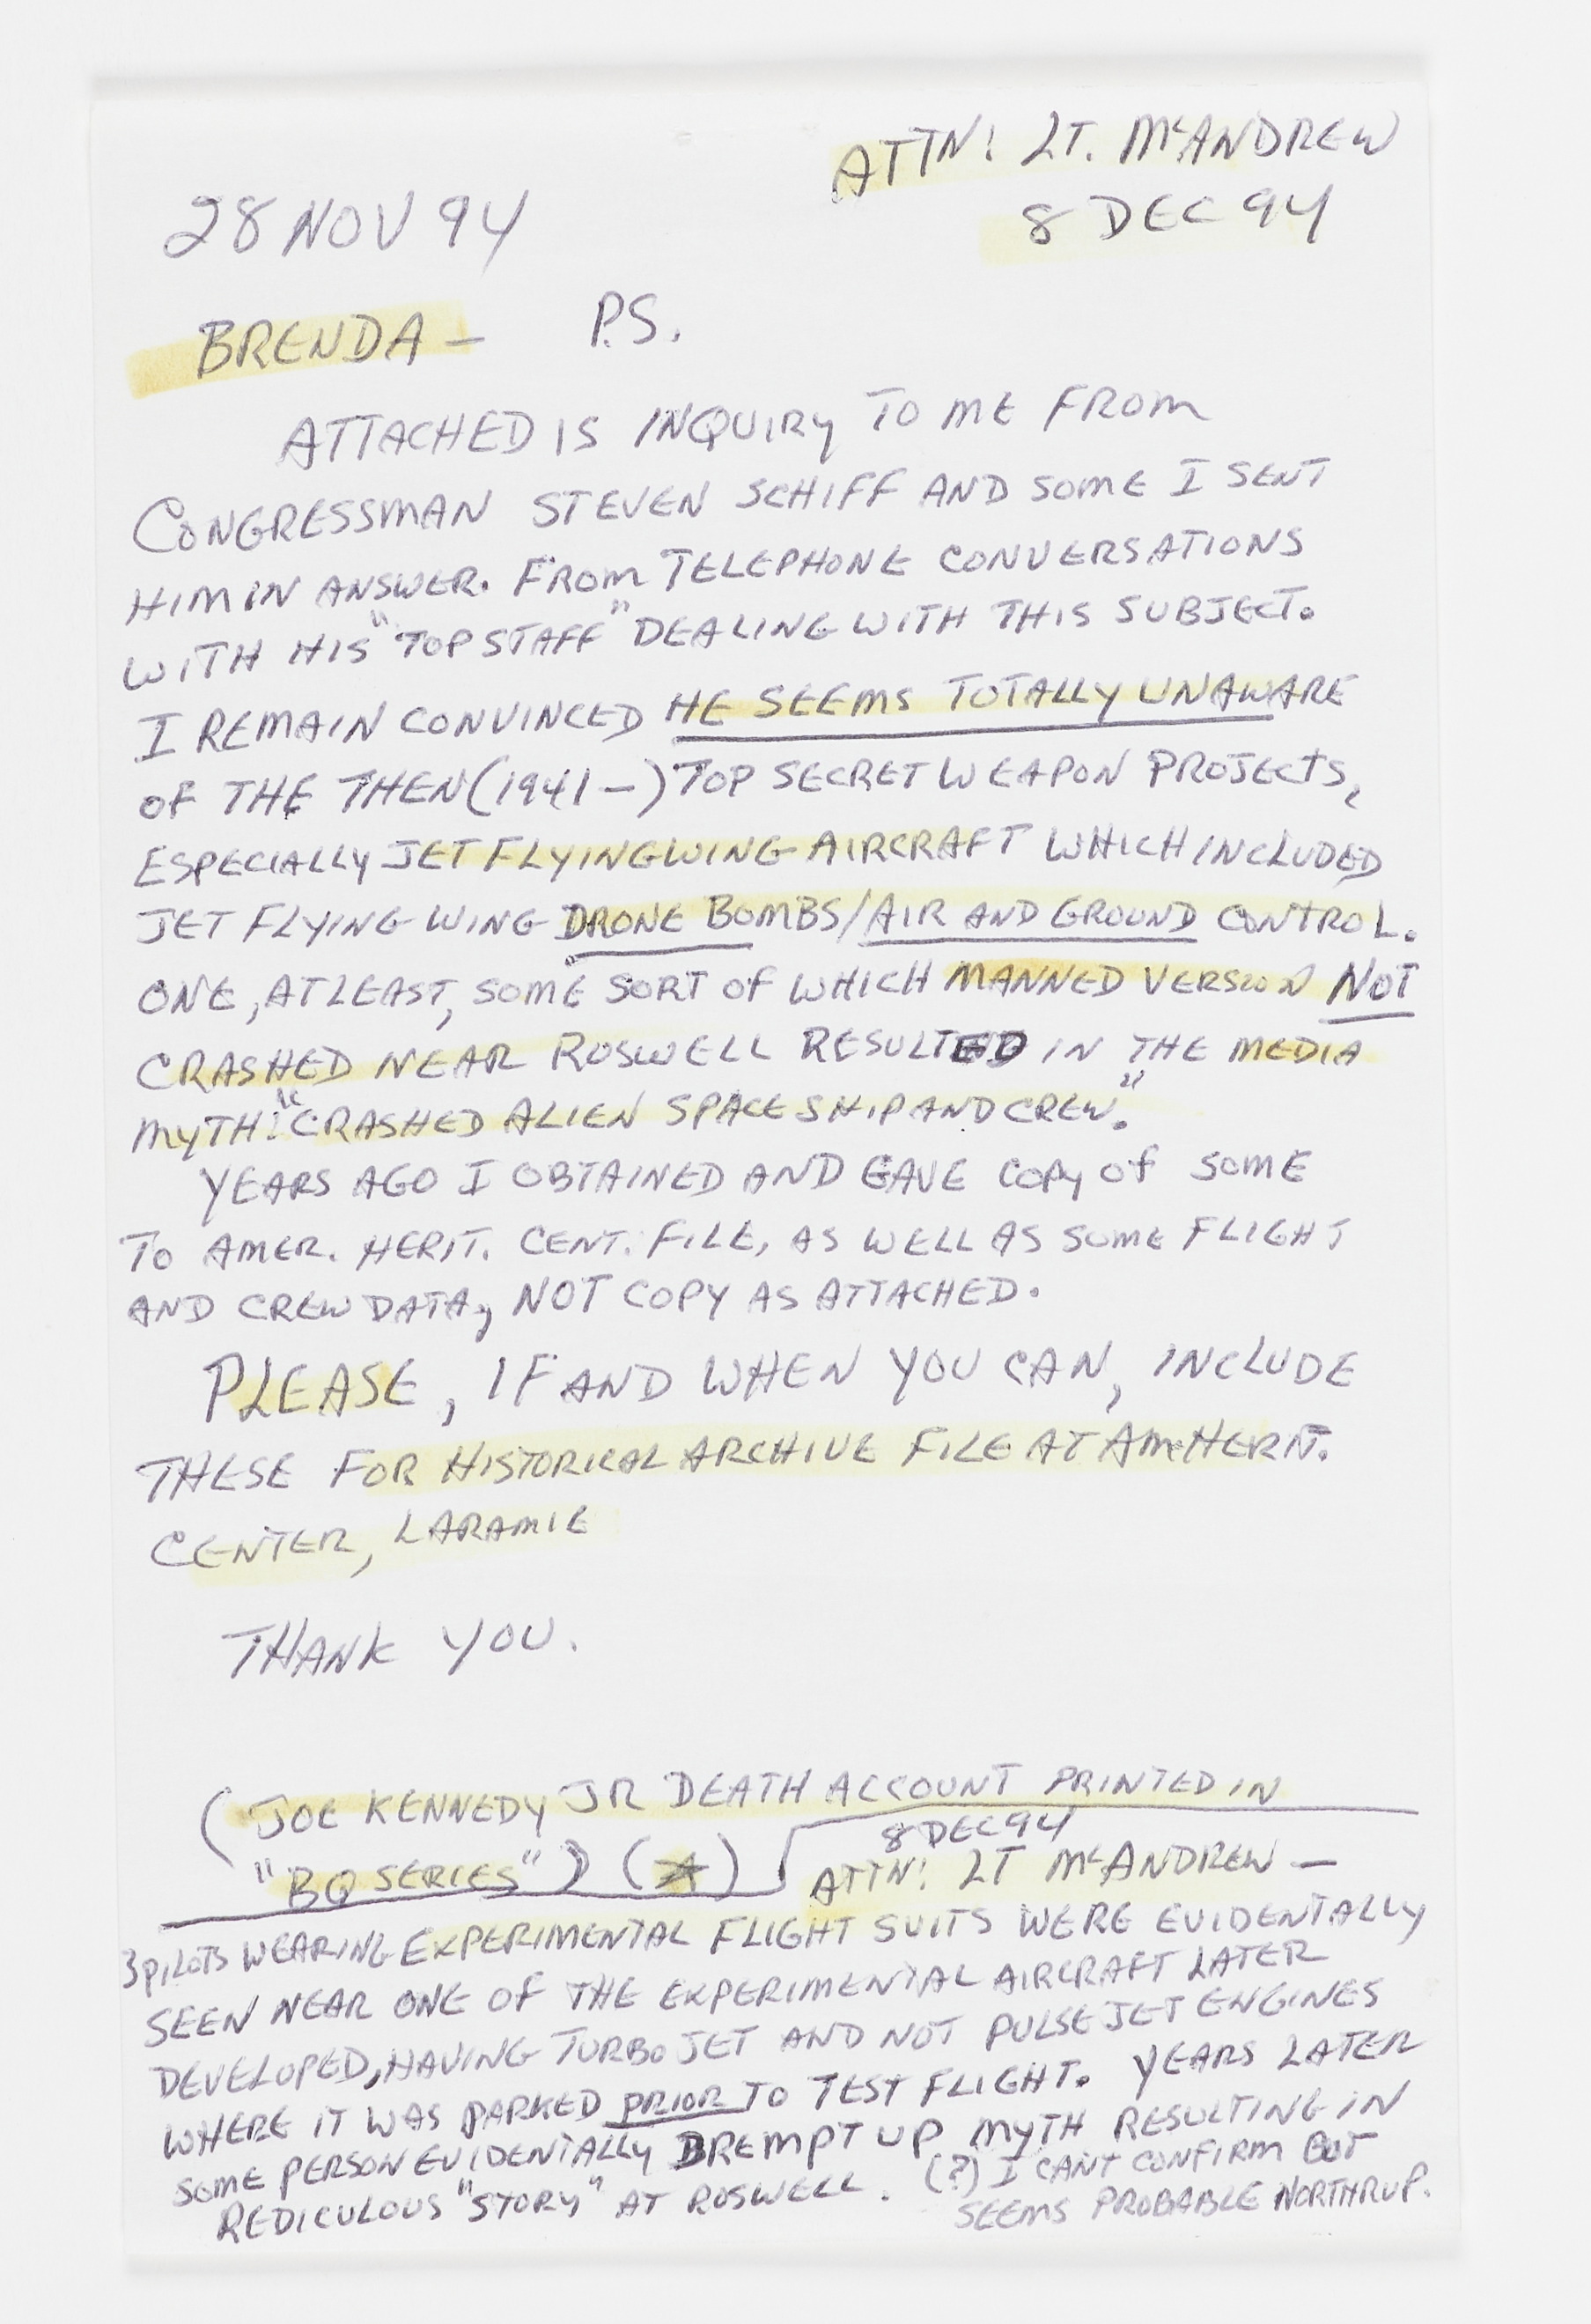 ATTN: LT. McANDREW
8 DEC 94
28 NOV 94
BRENDA — P.S.
ATTACHED IS INQUIRY TO ME FROM
CONGRESSMAN STEVEN SCHIFF AND SOME I SENT
HIM IN ANSWER. FROM TELEPHONE CONVERSATIONS
WITH HIS "TOP STAFF" DEALING WITH THIS SUBJECT.
I REMAIN CONVINCED HE SEEMS TOTALLY UNAWARE
OF THE THEN (1941—) TOP SECRET WEAPON PROJECTS,
ESPECIALLY JET FLYING WING AIRCRAFT WHICH INCLUDED
JET FLYING WING DRONE BOMBS/AIR AND GROUND CONTROL.
ONE, AT LEAST, SOME SORT OF WHICH MANNED VERSION NOT
CRASHED NEAR ROSWELL RESULTED IN THE MEDIA
MYTH: "CRASHED ALIEN SPACE SHIP AND CREW."
YEARS AGO I OBTAINED AND GAVE COPY OF SOME
TO AMER. HERIT. CENT. FILE, AS WELL AS SOME FLIGHT
AND CREW DATA, NOT COPY AS ATTACHED.
PLEASE, IF AND WHEN YOU CAN, INCLUDE
THESE FOR HISTORICAL ARCHIVE FILE AT AM HERIT.
CENTER, LARAMIE
THANK YOU.
(JOE KENNEDY JR DEATH ACCOUNT PRINTED IN
"BQ SERIES") (★)
8 DEC 94
ATTN: LT McANDREW —
3 PILOTS WEARING EXPERIMENTAL FLIGHT SUITS WERE EVIDENTALLY
SEEN NEAR ONE OF THE EXPERIMENTAL AIRCRAFT LATER
DEVELOPED, HAVING TURBO JET AND NOT PULSE JET ENGINES
WHERE IT WAS PARKED PRIOR TO TEST FLIGHT. YEARS LATER
SOME PERSON EVIDENTALLY DREMPT UP MYTH RESULTING IN
REDICULOUS "STORY" AT ROSWELL. (?) I CANT CONFIRM BUT
SEEMS PROBABLE NORTHRUP.